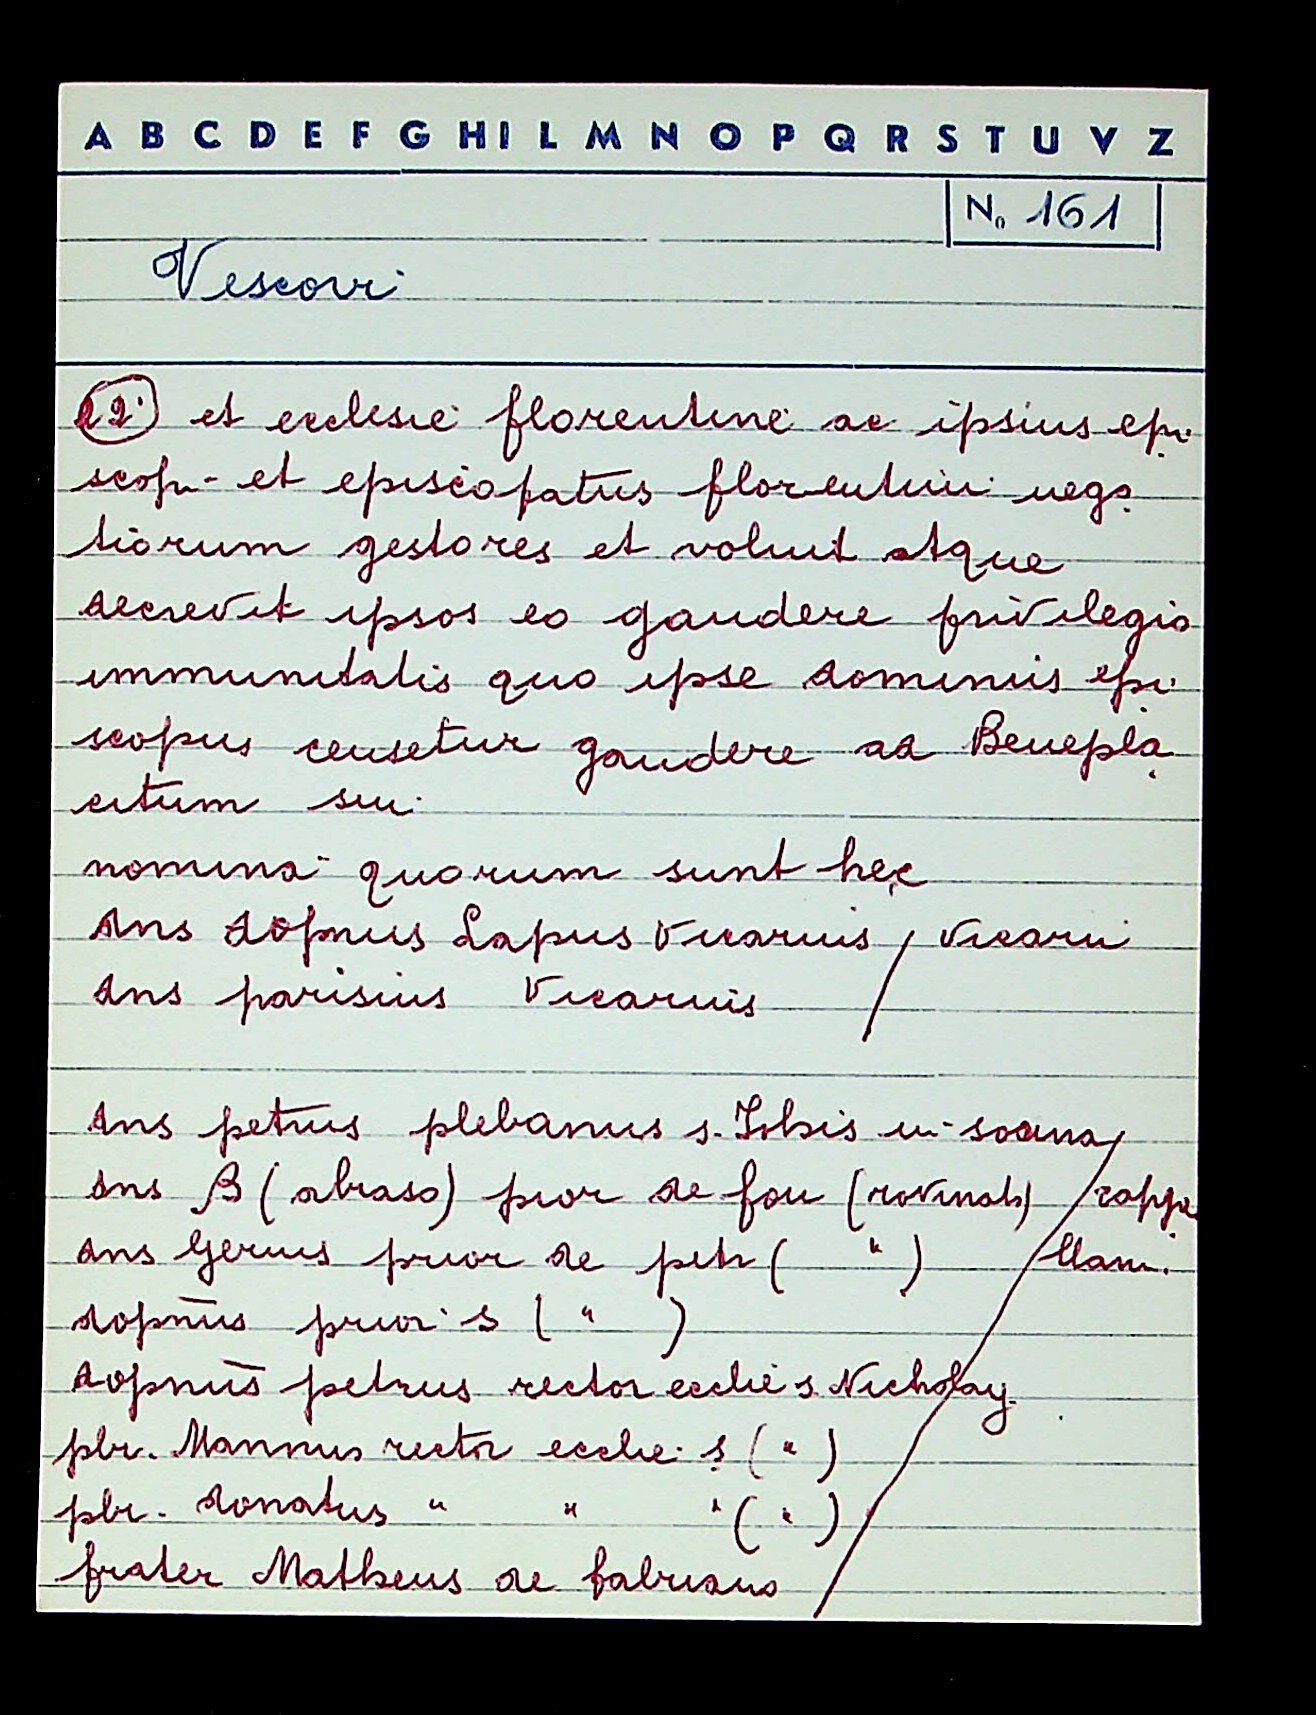 A B C D E F G H I L M N O P Q R S T U V Z
No 161
Vescovi
22 et ecclesie florentine ac ipsius epi
scopi et episcopatus florentini nego
tiorum gestores et voluit atque
decrevit ipsos eo gaudere privilegio
immunitatis quo ipse dominus epi
scopus censetur gaudere ad Benepla
citum sui
nomina quorum sunt hec
dns dopnus Lapus Vicarius / vicarii
dns parisius Vicarius
dns petrus plebanus s. in soana
dns B (abraso) prior de fon (rovinato) / cappe
dns Gerius prior de petr ( " ) llani
dopnus prior s ( " )
dopnus petrus rector ecclie s. Nicholay
pbr. Mannus rector ecclie s ( " )
pbr. donatus " " " ( " )
frater Matheus de fabriano